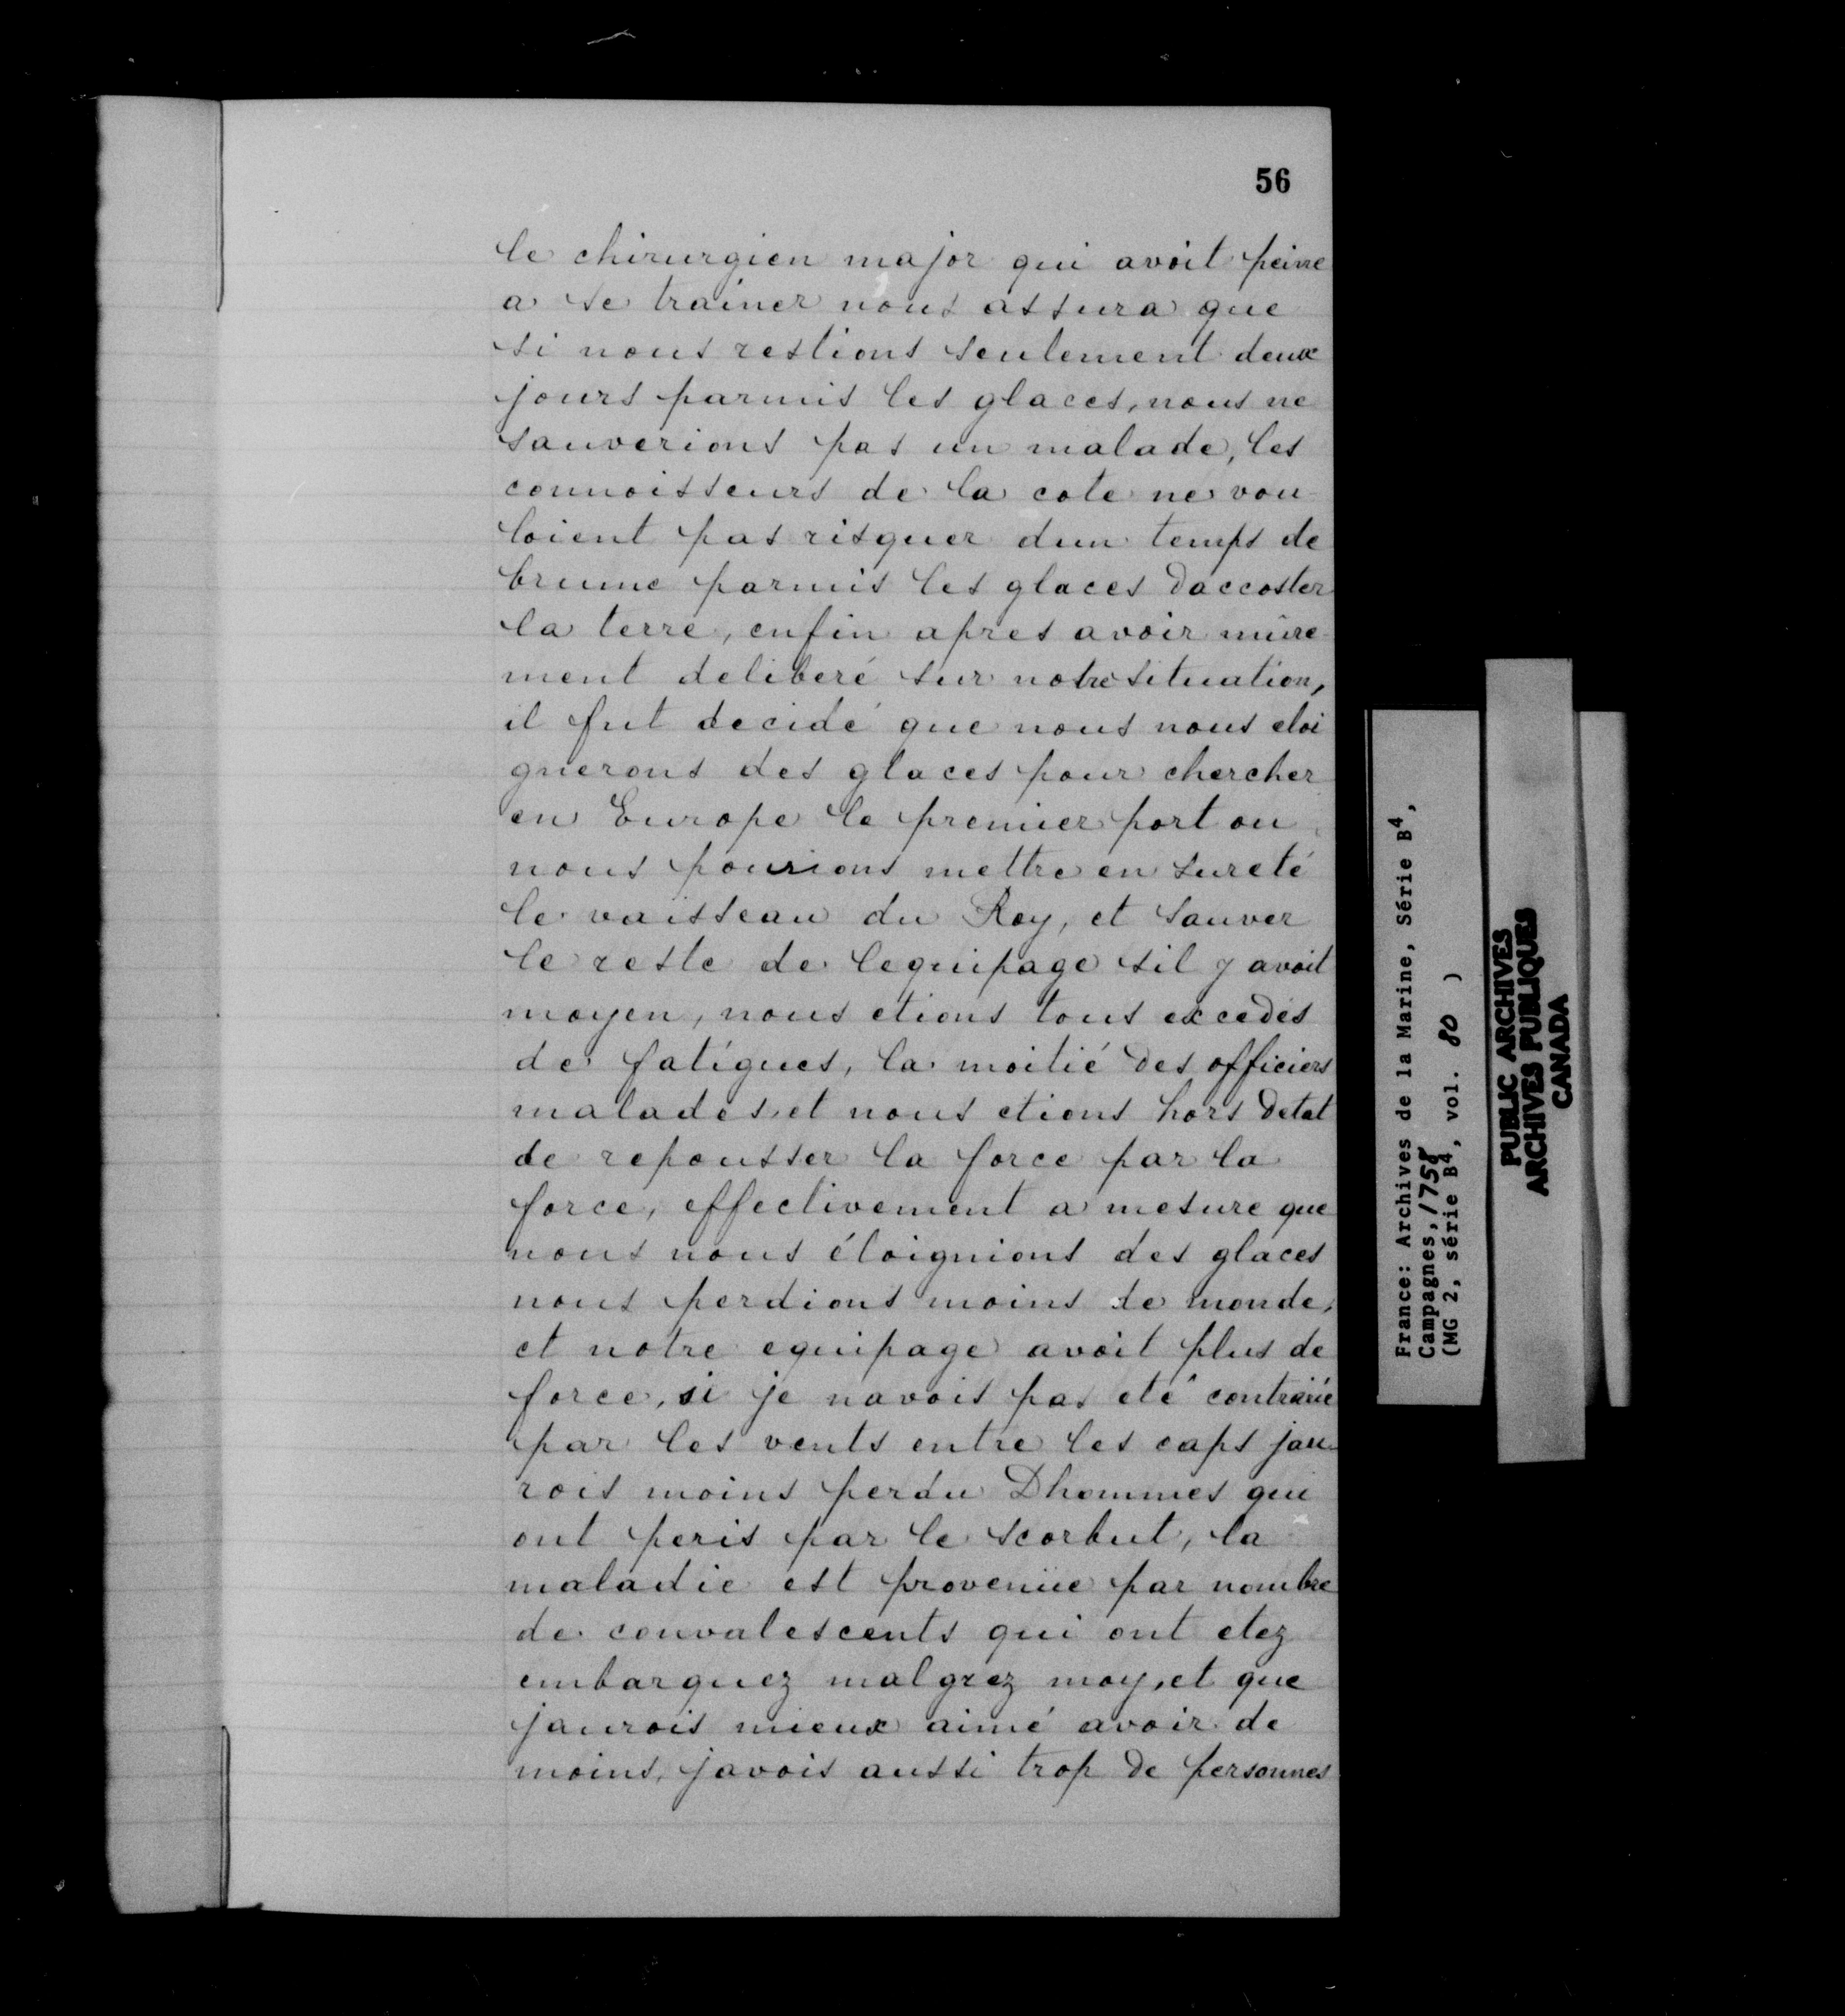 56
le chirurgien major qui avoit peine
a se trainer nous assura que
si nous restions seulement deux
jours parmis les glaces, nous ne
sauverions pas un malade, les
connoisseurs de la cote ne vou
loient pas risquer dun temps de
brume parmis les glaces daccoster
la terre, enfin apres avoir mûre
ment deliberé sur notre situation,
il fut decidé que nous nous eloi
gnerons des glaces pour chercher
en Europe le premier port ou
nous pourions mettre en sureté
le vaisseau du Roy, et sauver
le reste de lequipage sil y avoit
moyen, nous etions tous excedés
de fatigues, la moitié des officiers
malades, et nous etions hors detat
de repousser la force par la
force, effectivement a mesure que
nous nous éloignions des glaces
nous perdions moins de monde,
et notre equipage avoit plus de
force, si je navois pas eté contrarié
par les vents entre les caps jau
rois moins perdu Dhommes qui
ont peris par le scorbut, la
maladie est provenüe par nombre
de convalescents qui ont etez
embarquez malgrez moy, et que
jaurois mieux aimé avoir de
moins, javois aussi trop de personnes
France: Archives de la Marine, Série B4,
Campagnes, 1758
(MG 2, série B4, vol. 80 )
PUBLIC ARCHIVES
ARCHIVES PUBLIQUES
CANADA